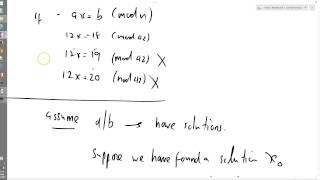 If - ax=b (mod n)
12x=18 (mod 42)
12x=19 (mod 42) X
12x=20 (mod 42) X
assume d/b → have solutions.
Suppose we have found a solution x₀